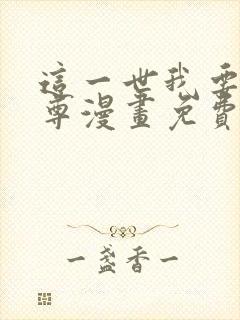 這一世我要
尊漫畫免費
一盞香一